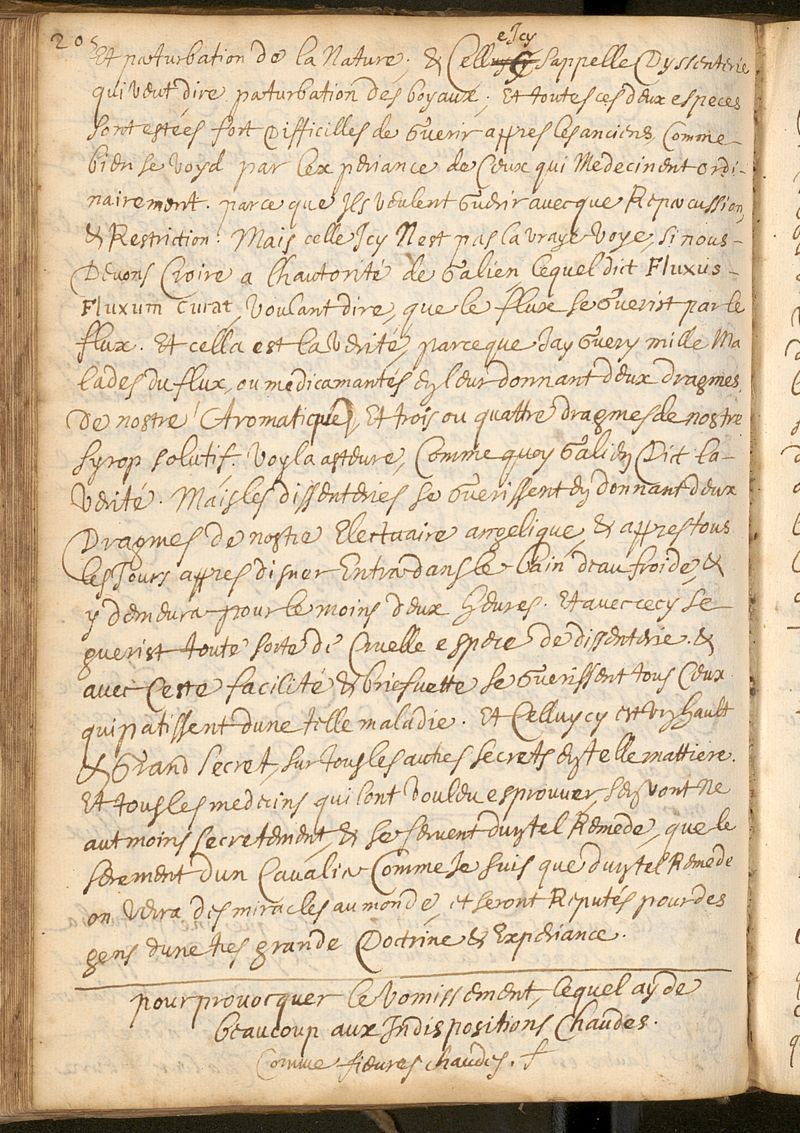 205
eIcy
Et paturbation de la Nature. & Cell sappelle Dyssenterie
qui veut dire paturbation des boyaux; Et toutes ces deux especes
sont estées fort Difficilles de Guerir appres les anciens Comme
bien se voyd par lexperiance de Ceux qui Medecinent ordi-
nairement. parce que Ils veulent Guerir avecque Reparcussion,
& Restriction: Mais celle Icy N'est pas la vraye voye, si nous-
Devons Croire a lhautorité de Galien lequel dict Fluxus-
Fluxum curat, Voulant dire, que le flux se Guerist par le
flux. Et cella est la Verité, parce que Jay Guery mille Ma
lades du flux, ou medicamantés en leur donnant deux dragmes
De nostre Aromatique, Et trois ou quattre dragmes de nostre
Syrop solutif. Voyla asteure, Comme quoy Galien Dict la-
Verité. Mais les dissenteries se Guerissent en donnant deux
Dragmes de nostre Electuaire angelique, & appres tous
les Jours appres disner Entra dans le bain deau froide, &
y demeura pour le moins deux Heures. Et avec cecy se
guerist toute sorte de Cruelle espece de dissenterie. &
avec Ceste facilité & briefvette se Guerissent tous Ceux
qui patissent dune telle maladie. Et Celluycy est un hault
& Grand Secret, sur tous les autres secrets en telle mattiere.
Et tous les medecins qui lont voulou esprouver sen vont Ne
aut moins secretement, & se servent dun tel Remede, que le
serement dun Cavalier Comme Je suis que dun tel Remede
on verra des miracles au monde, et seront Reputés pour des
gens dune tres grande Doctrine & Experiance.
pour provocquer le Vomissement, lequel ayde
beaucoup aux Indispositions Chaudes.
Comme fievres chaudes.